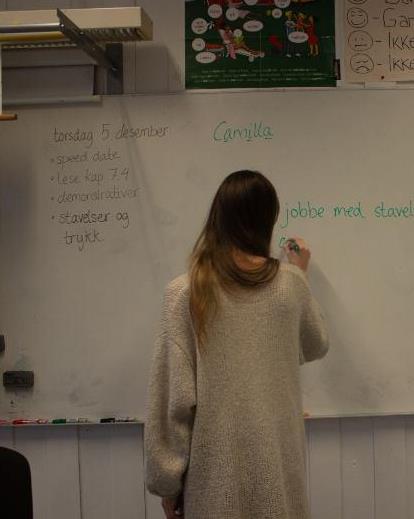 torsdag 5. desember
• speed date
• lese kap 7.4
• demonstrativer
• stavelser og
trykk
Camilla
jobbe med stavel
- Ga
- Ikke
- Ikke